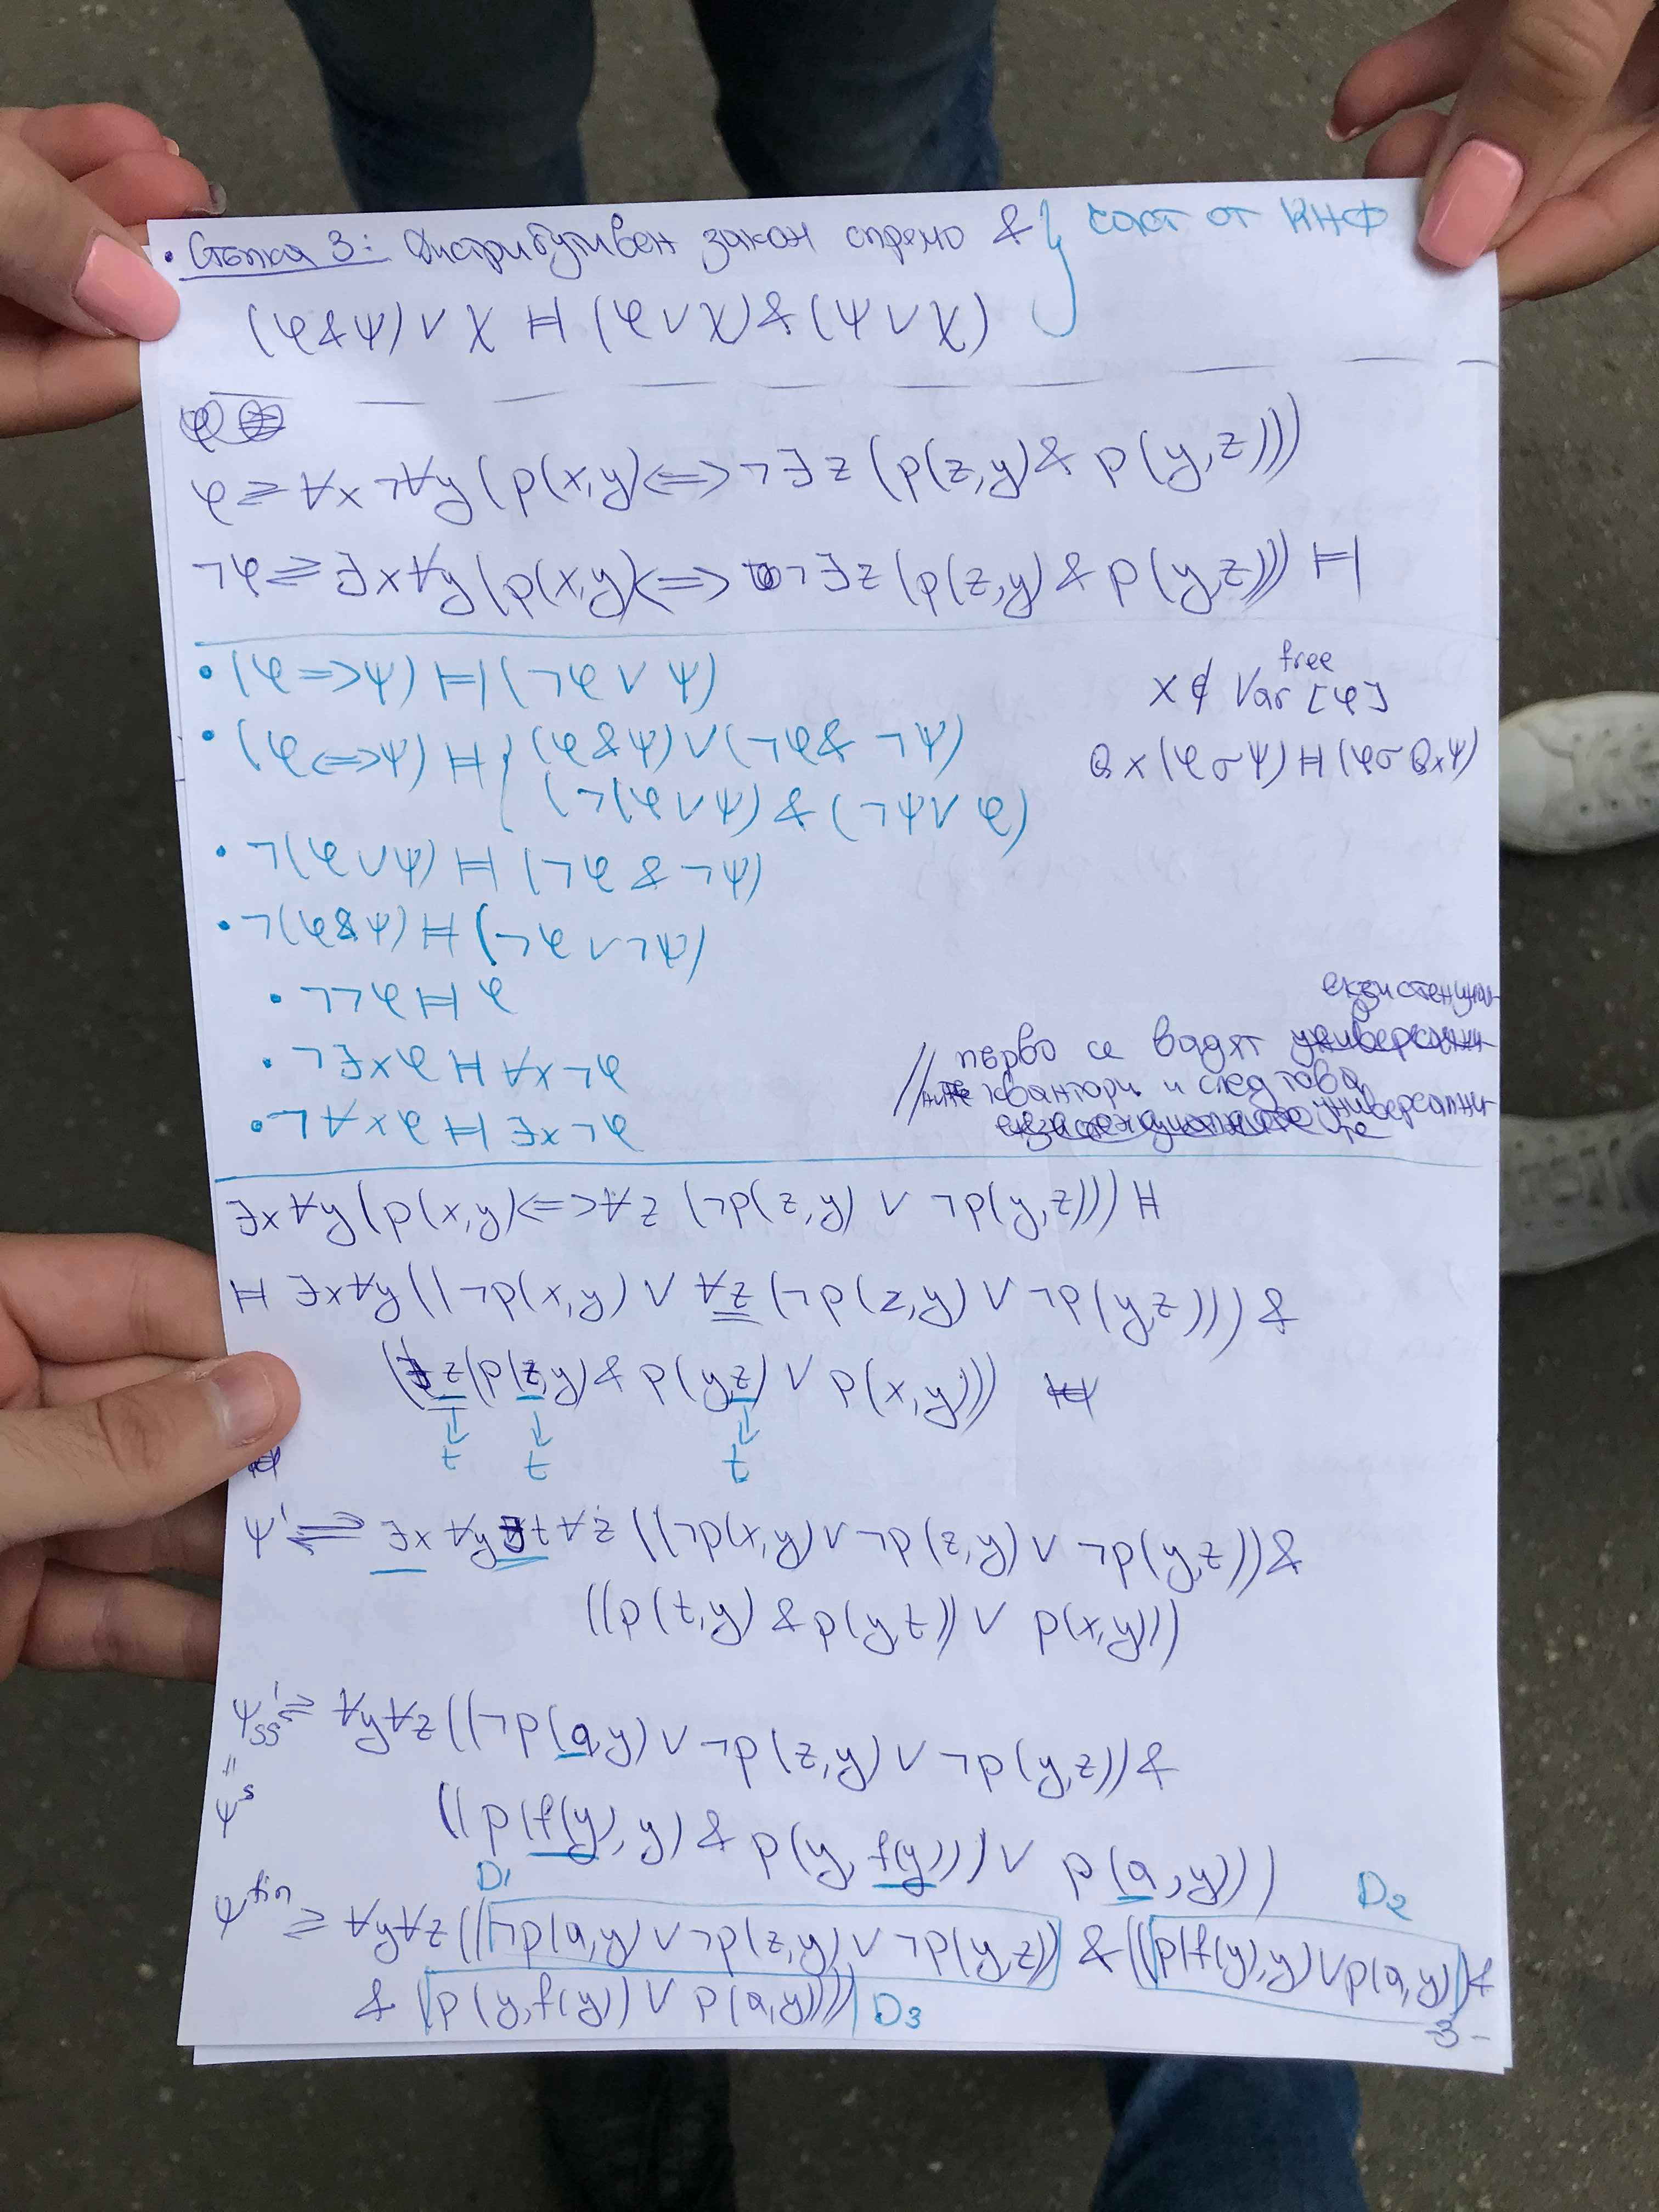 • Стъпка 3: Дистрибутивен закон спрямо & } част от КНФ
(φ&ψ) ∨ χ ⊨ (φ∨χ)&(ψ∨χ)
φ
φ ⇌ ∀x¬∀y(p(x,y)<=>¬∃z(p(z,y)& p(y,z)))
¬φ ⇌ ∃x∀y(p(x,y)<=> ¬∃z(p(z,y)& p(y,z))) ⊨
• (φ=>ψ) ⊨ (¬φ ∨ ψ)
x ∉ Var^free[φ]
• (φ<=>ψ) ⊨ { (φ&ψ)∨(¬φ& ¬ψ)
(¬(φ∨ψ) & (¬ψ∨ φ)
Qx(φσψ) ⊨ (φσQxψ)
• ¬(φ∨ψ) ⊨ (¬φ & ¬ψ)
• ¬(φ&ψ) ⊨ (¬φ∨¬ψ)
• ¬¬φ ⊨ φ
• ¬∃xφ ⊨ ∀x¬φ
• ¬∀xφ ⊨ ∃x¬φ
екзистенциал-
// първо се вадят универсални
ните квантори и след това
универсалните
∃x∀y(p(x,y)<=>∀z(¬p(z,y) ∨ ¬p(y,z))) ⊨
⊨ ∃x∀y((¬p(x,y) ∨ ∀z(¬p(z,y)∨¬p(y,z))) &
(∃z(p(z,y)& p(y,z) ∨ p(x,y))) ⊨
↓ t ↓ t ↓ t
ψ' ⇌ ∃x∀y∃t∀z((¬p(x,y)∨¬p(z,y)∨ ¬p(y,z))&
((p(t,y)&p(y,t)) ∨ p(x,y)))
ψ'ss ⇌ ∀y∀z((¬p(a,y)∨¬p(z,y)∨¬p(y,z))&
" ψ^s
((p(f(y),y) & p(y,f(y)))∨ p(a,y)))
D1 D2
ψ^fin ⇌ ∀y∀z((¬p(a,y)∨¬p(z,y)∨¬p(y,z)) &((p(f(y),y)∨p(a,y))&
& (p(y,f(y))∨ p(a,y)))) D3
-3-